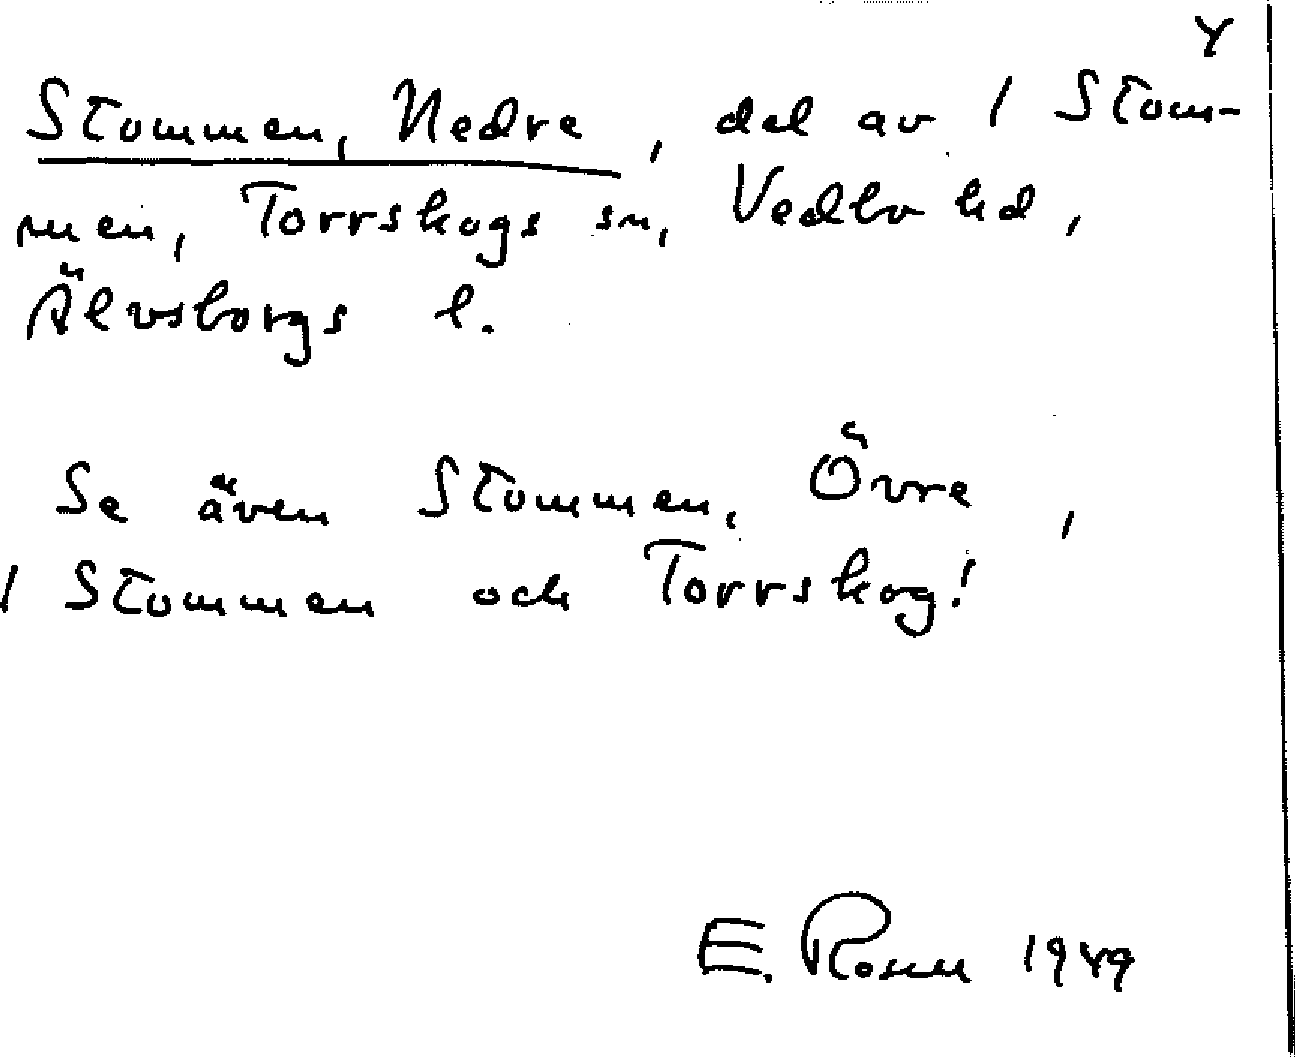 4
Stommen, Nedre, del av 1 Stom-
men, Torrskogs sn, Vedbo hd,
Älvsborgs l.
Se även Stommen, Övre,
1 Stommen och Torrskog!
E. 1949